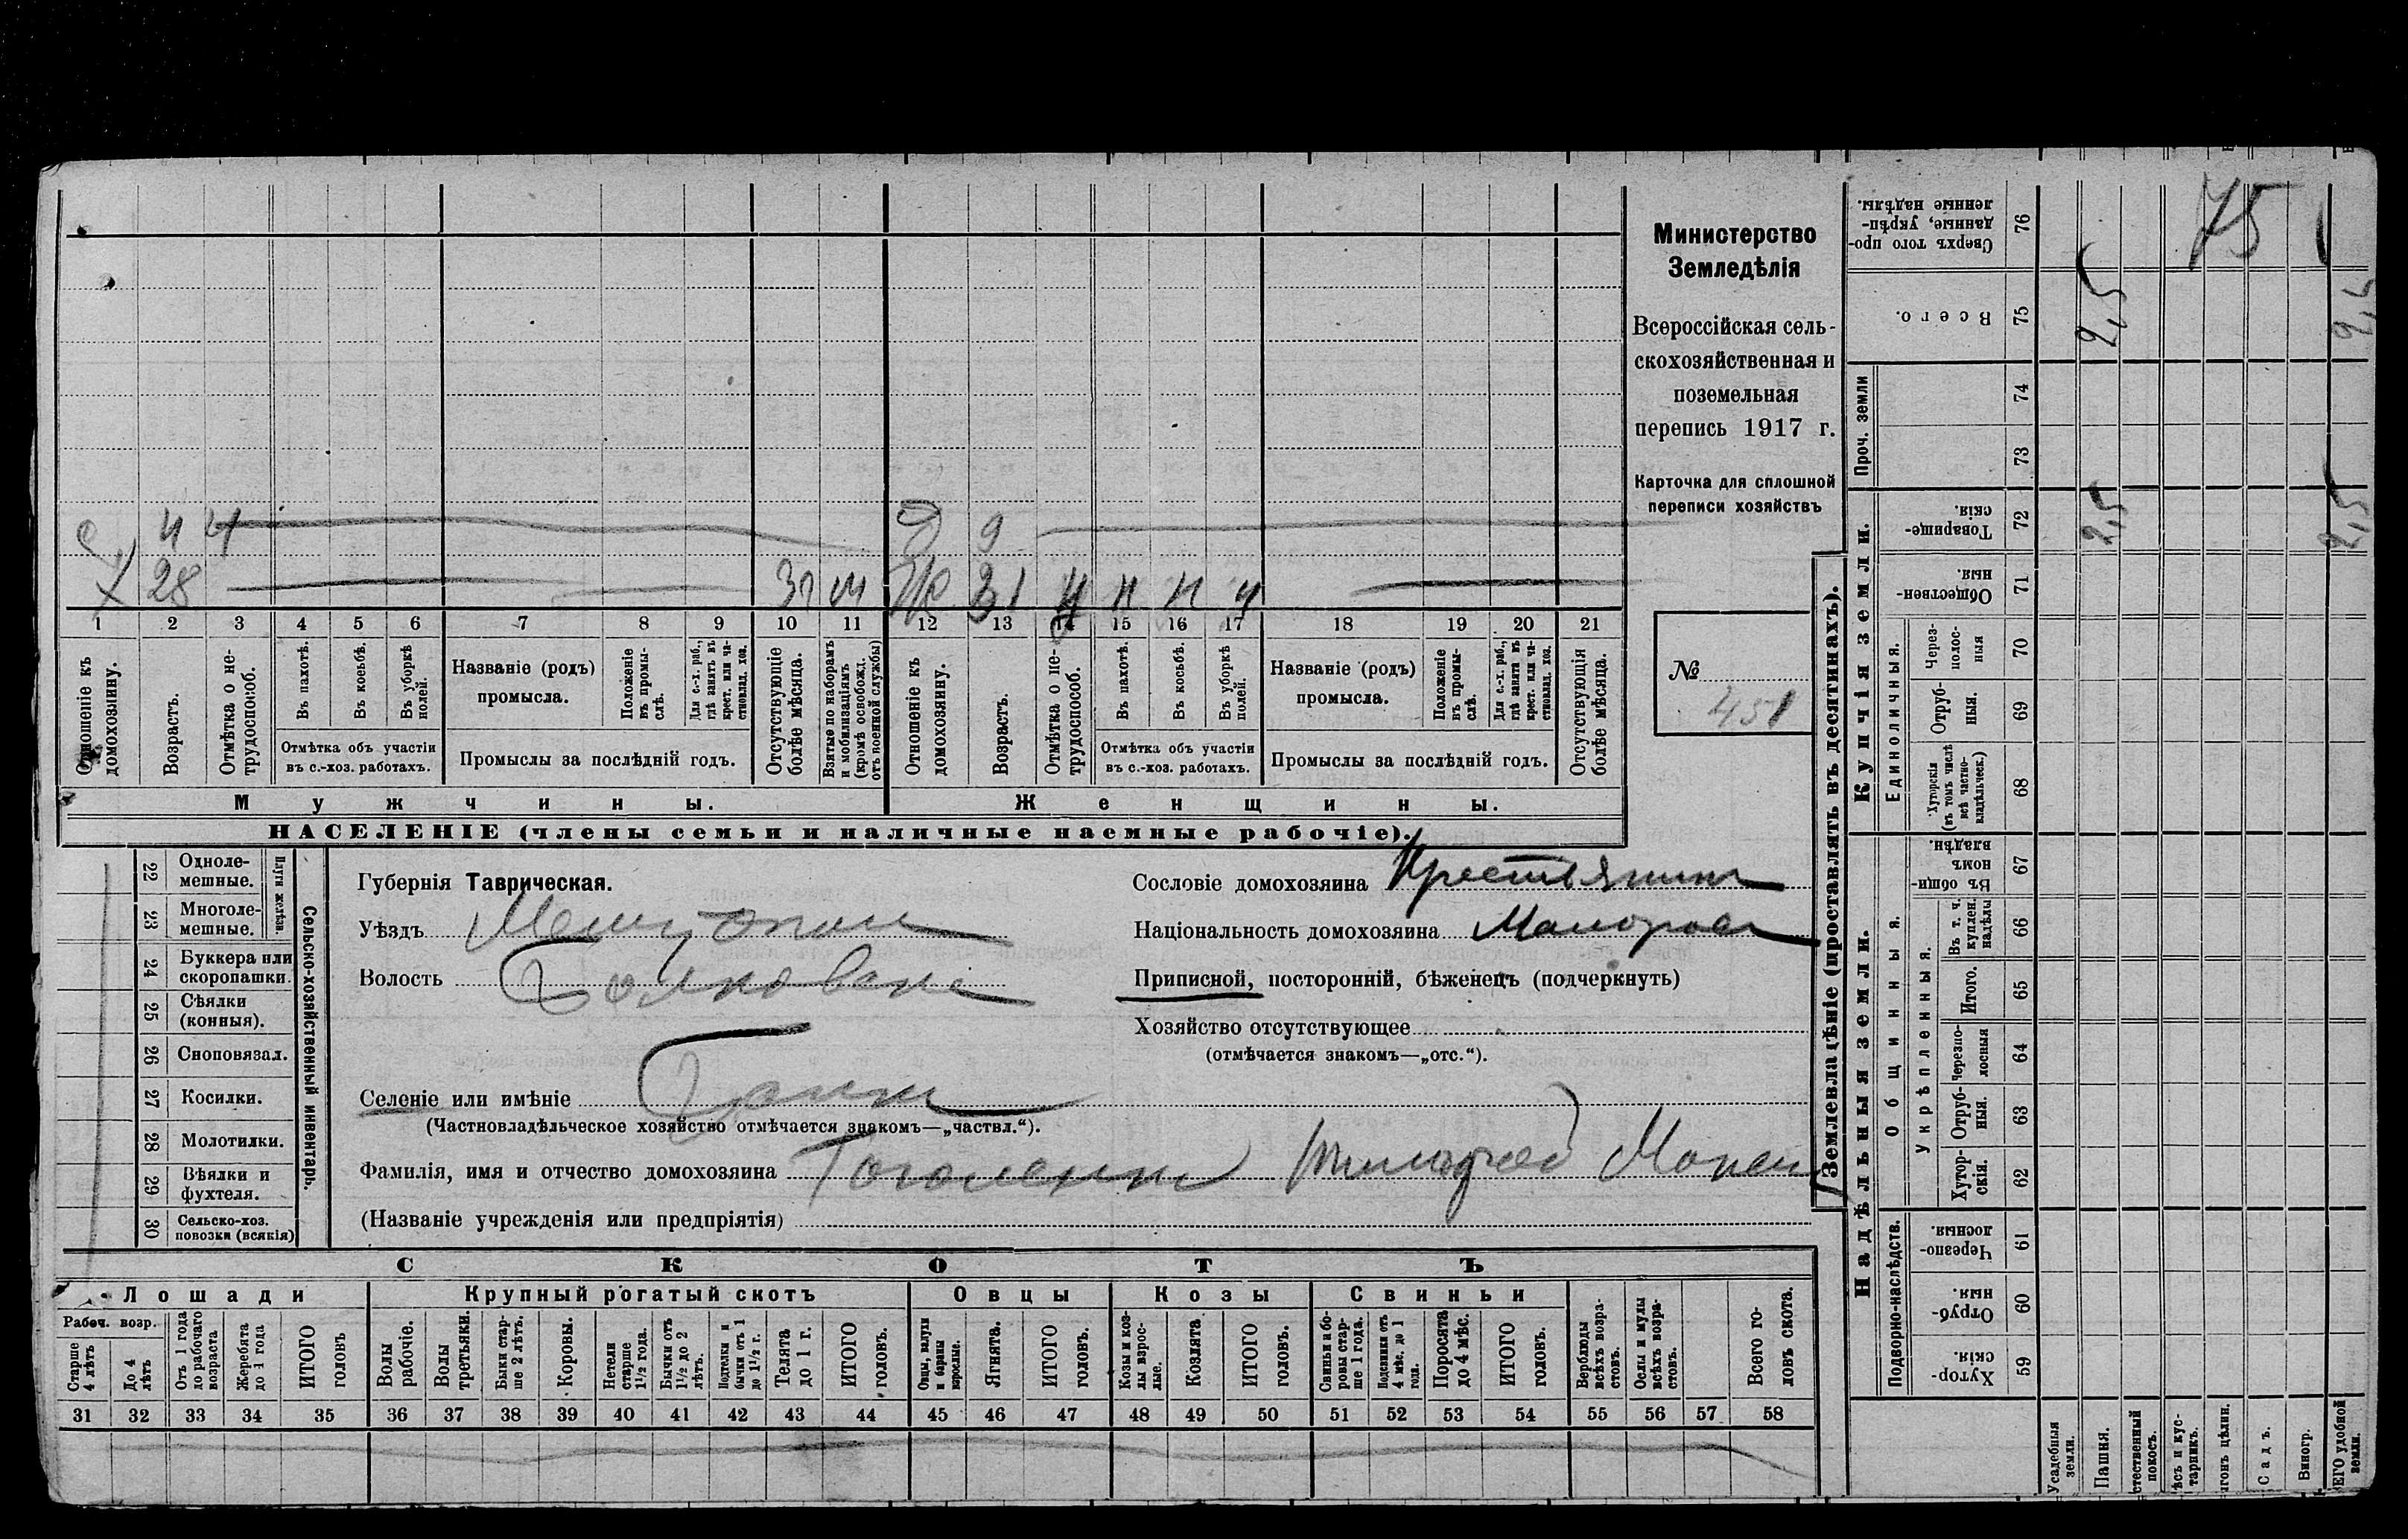 Министерство
Земледѣлія
Всероссійская сель-
скохозяйственная и
поземельная
перепись 1917 г.
Карточка для сплошной
переписи хозяйствъ
№
451
4 9
28 31 н н н
1 2 3 4 5 6 7 8 9 10 11 12 13 14 15 16 17 18 19 20 21
Отношеніе къ домохозяину.
Возрастъ.
Отмѣтка о не-трудоспособ.
Въ пахотѣ.
Въ косьбѣ.
Въ уборкѣ полей.
Отмѣтка объ участіи
въ с.-хоз. работахъ.
Названіе (родъ)
промысла.
Положеніе въ промы-слѣ.
Для с.-х. раб., гдѣ занятъ въ крест. или ча-стновлад. хоз.
Промыслы за послѣдній годъ.
Отсутствующіе болѣе мѣсяца.
Взятые по наборамъ и мобилизаціямъ (кромѣ освобожд. отъ военной службы)
Отношеніе къ домохозяину.
Возрастъ.
Отмѣтка о не-трудоспособ.
Въ пахотѣ.
Въ косьбѣ.
Въ уборкѣ полей.
Отмѣтка объ участіи
въ с.-хоз. работахъ.
Названіе (родъ)
промысла.
Положеніе въ промы-слѣ.
Для с.-х. раб., гдѣ занята въ крест. или ча-стновлад. хоз.
Промыслы за послѣдній годъ.
Отсутствующія болѣе мѣсяца.
Мужчины. Женщины.
НАСЕЛЕНІЕ (члены семьи и наличные наемные рабочіе).
22 Одноле-мешные.
23 Многоле-мешные.
Плуги желѣзн.
24 Буккера или скоропашки.
25 Сѣялки (конныя).
26 Сноповязал.
27 Косилки.
28 Молотилки.
29 Вѣялки и фухтеля.
30 Сельско-хоз. повозки (всякія)
Сельско-хозяйственный инвентарь.
Губернія Таврическая.
Уѣздъ
Волость
Селеніе или имѣніе
(Частновладѣльческое хозяйство отмѣчается знакомъ—„частвл.“).
Фамилія, имя и отчество домохозяина
(Названіе учрежденія или предпріятія)
Сословіе домохозяина Крестьянин
Національность домохозяина Малорос
Приписной, посторонній, бѣженецъ (подчеркнуть)
Хозяйство отсутствующее
(отмѣчается знакомъ—„отс.“).
СКОТЪ
Лошади Крупный рогатый скотъ Овцы Козы Свиньи
Рабоч. возр.
Старше 4 лѣтъ
До 4 лѣтъ
Отъ 1 года до рабочаго возраста
Жеребята до 1 года
ИТОГО головъ
Волы рабочіе.
Волы третьяки.
Быки стар-ше 2 лѣтъ.
Коровы.
Нетели старше 1½ года.
Бычки отъ 1½ до 2 лѣтъ.
Подтелки и бычки отъ 1 до 1½ г.
Телята до 1 г.
ИТОГО головъ.
Овцы, валухи и бараны взрослые.
Ягнята.
ИТОГО головъ.
Козы и коз-лы взрос-лые.
Козлята
ИТОГО головъ.
Свиньи и бо-ровы стар-ше 1 года.
Подсвинки отъ 4 мѣс. до 1 года.
Поросята до 4 мѣс.
ИТОГО головъ.
Верблюды всѣхъ возра-стовъ.
Ослы и мулы всѣхъ возра-стовъ.
Всего го-ловъ скота.
31 32 33 34 35 36 37 38 39 40 41 42 43 44 45 46 47 48 49 50 51 52 53 54 55 56 57 58
Землевладѣніе (проставлять въ десятинахъ).
Надѣльныя земли. Купчія земли.
Подворно-наслѣдств.
Общинныя.
Укрѣпленныя.
Единоличныя.
Проч. земли
Хутор-скія. 59
Отруб-ныя. 60
Черезпо-лосныя. 61
Хутор-скія. 62
Отруб-ныя. 63
Черезпо-лосныя 64
Итого. 65
Въ т. ч. куплен. надѣлы 66
Въ общи-номъ владѣн. 67
Хуторскія (въ томъ числѣ всѣ частно-владѣльческ.) 68
Отруб-ныя. 69
Через-полос-ныя 70
Обществен-ныя. 71
Товарище-скія. 72 2,5 2,5
73
74
Всего. 75 2,5 2,5
Сверхъ того про-данные, укрѣп-ленные надѣлы. 76
75
Усадебныя земли.
Пашня.
тественный покосъ.
ѣсъ и кус-тарникъ.
гонъ цѣлин.
Садъ.
Виногр.
ЕГО удобной земли.